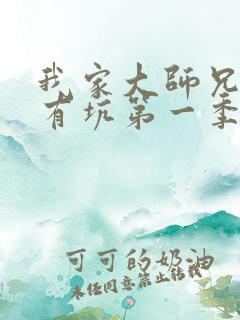 我家大师兄
有坑第一季
可可的奶油
未经同意禁止转载